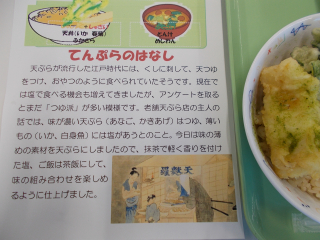 天丼(いか 春菊)
とん汁
めしわん
てんぷらのはなし
天ぷらが流行した江戸時代には、くしに刺して、天つゆ
をつけ、おやつのように食べられていたそうです。現在で
は塩で食べる機会も増えてきましたが、アンケートを取る
とまだ「つゆ派」が多い模様です。老舗天ぷら店の主人の
話では、味が濃い天ぷら(あなご、かきあげ)はつゆ、薄い
もの(いか、白身魚)には塩があうとのこと。今日は味の薄
めの素材を天ぷらにしましたので、抹茶で軽く香りを付け
た塩、ご飯は茶飯にして、
味の組み合わせを楽しめ
るように仕上げました。
羅麩天